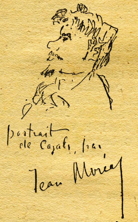 portrait
de Cazals, par
Jean Moréas